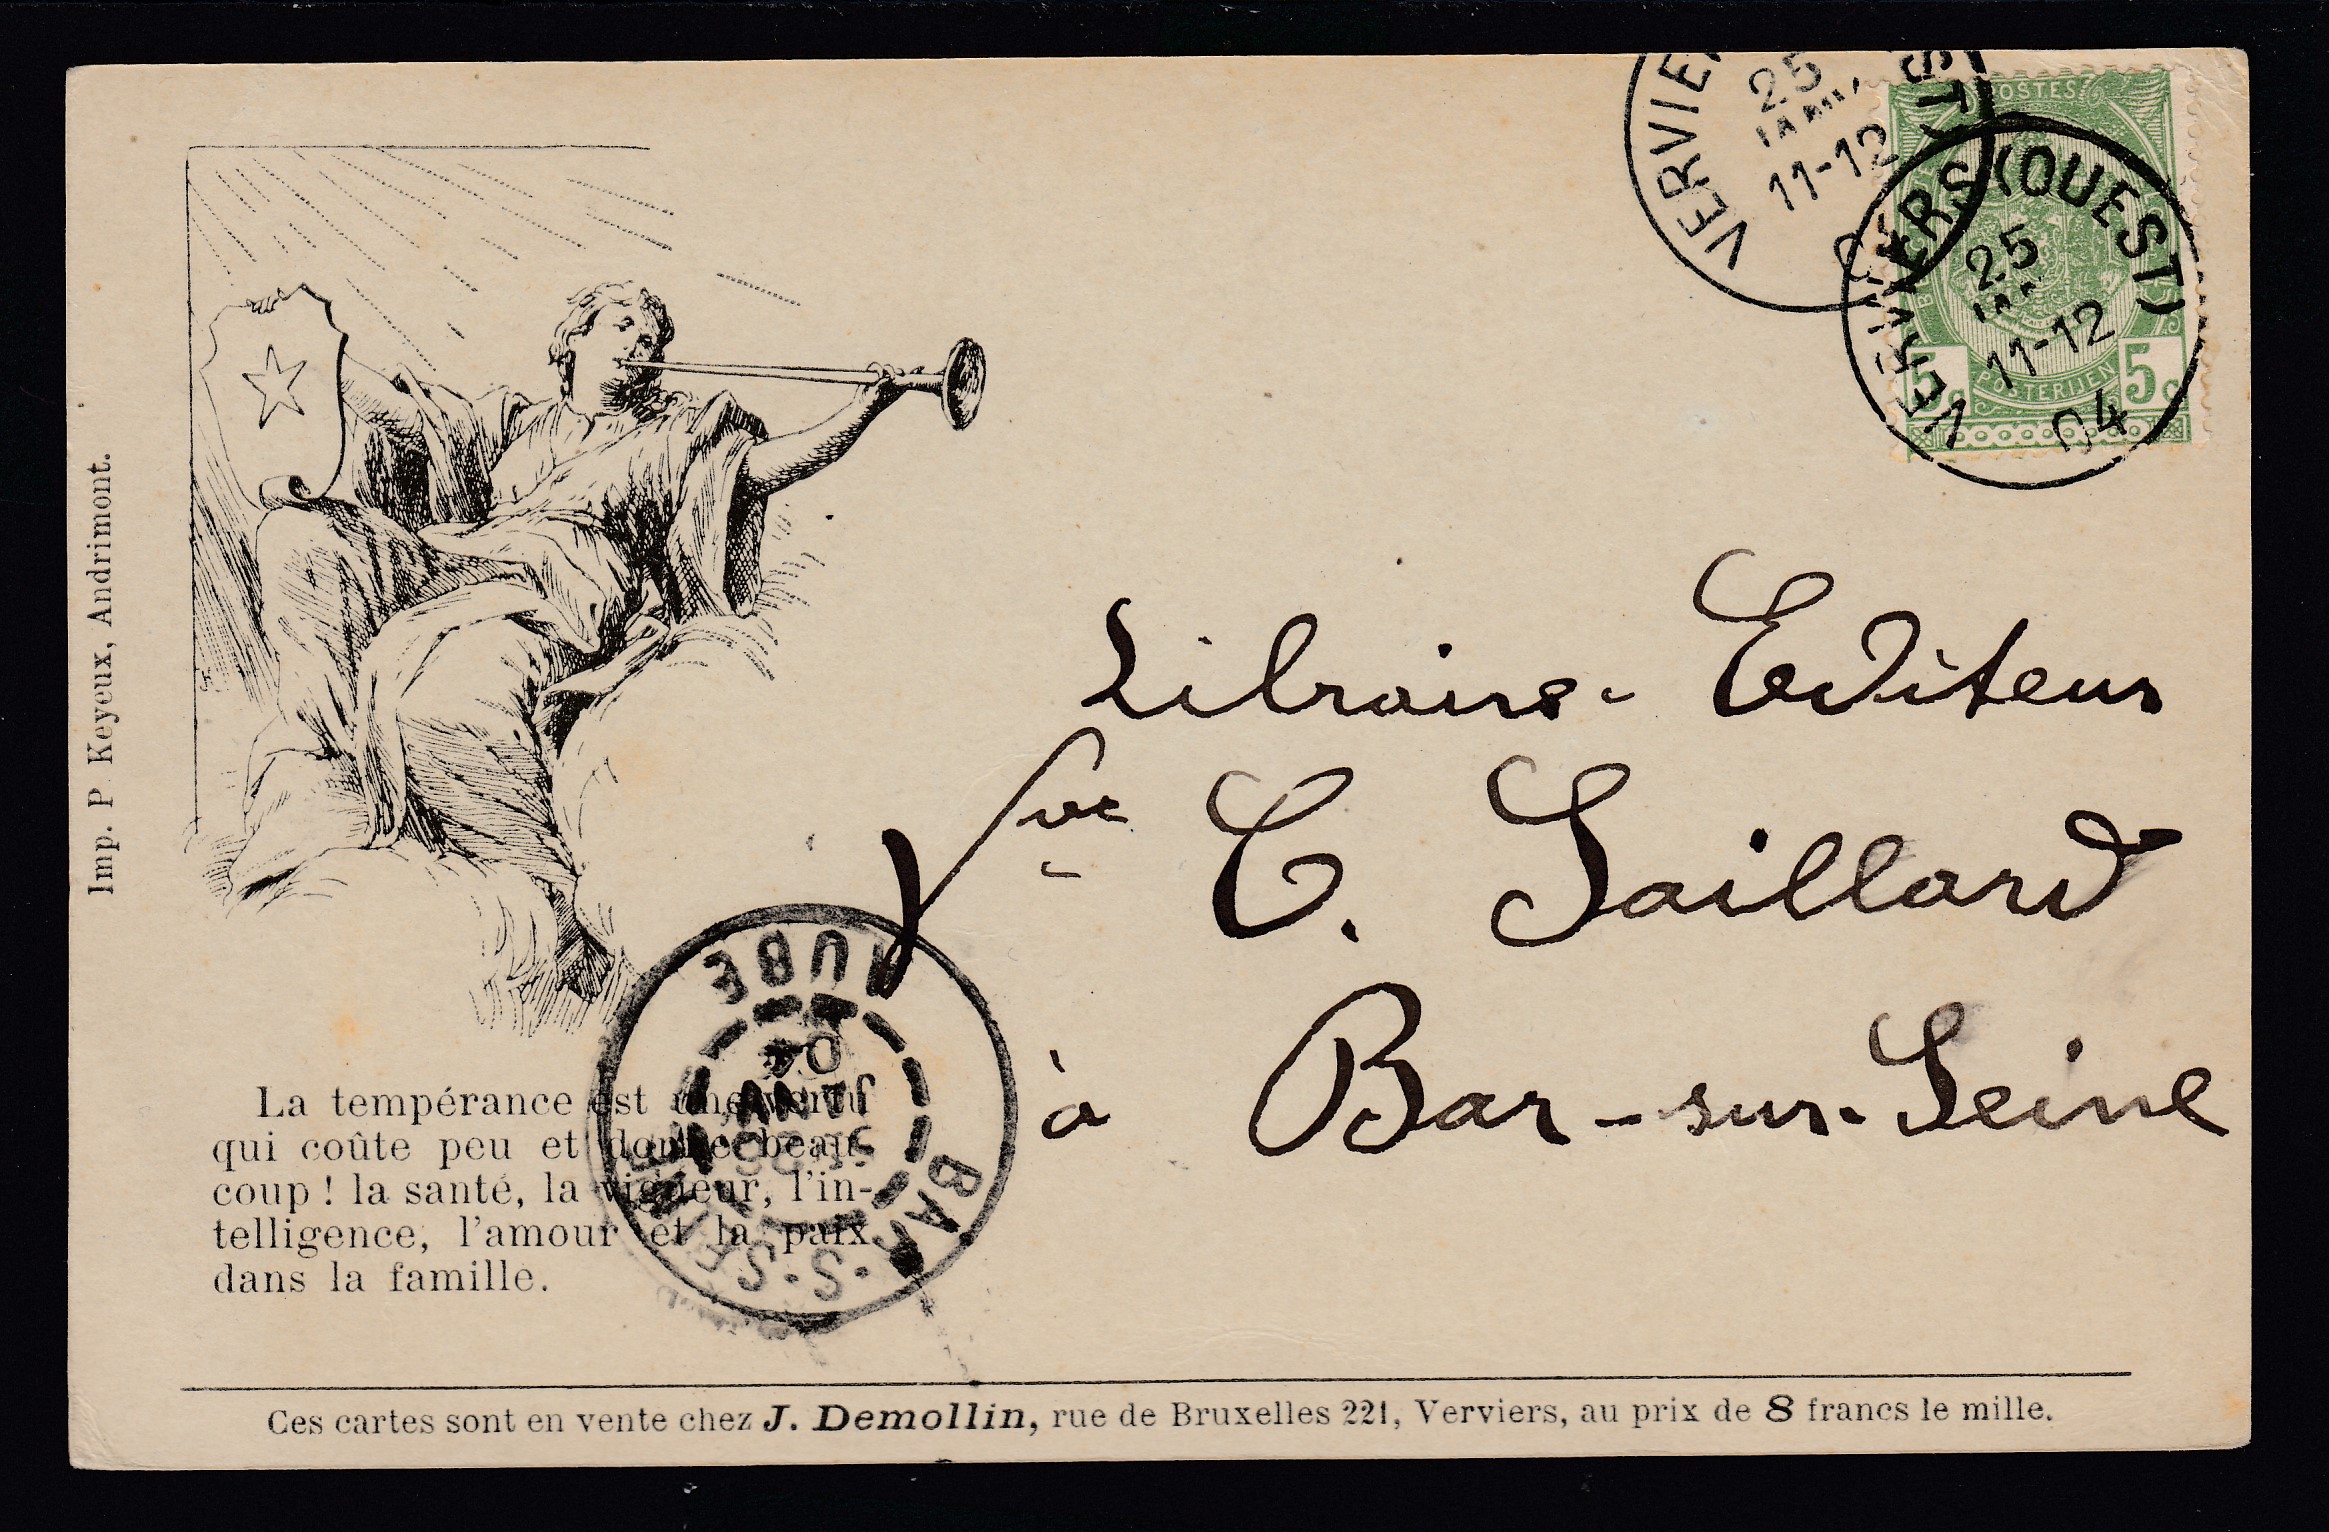 VERVIERS
25
11-12
POSTES
VERVIERS (OUEST)
25
11-12
04
5c
POSTERIJEN
5c
Imp. P. Keyeux, Andrimont.
Libraire-Editeur
Vve C. Saillard
à Bar-sur-Seine
AUBE
04
JANV
BAR-S-SEINE
La tempérance est une vertu
qui coûte peu et donne beau-
coup ! la santé, la vigueur, l'in-
telligence, l'amour et la paix
dans la famille.
Ces cartes sont en vente chez J. Demollin, rue de Bruxelles 221, Verviers, au prix de 8 francs le mille.